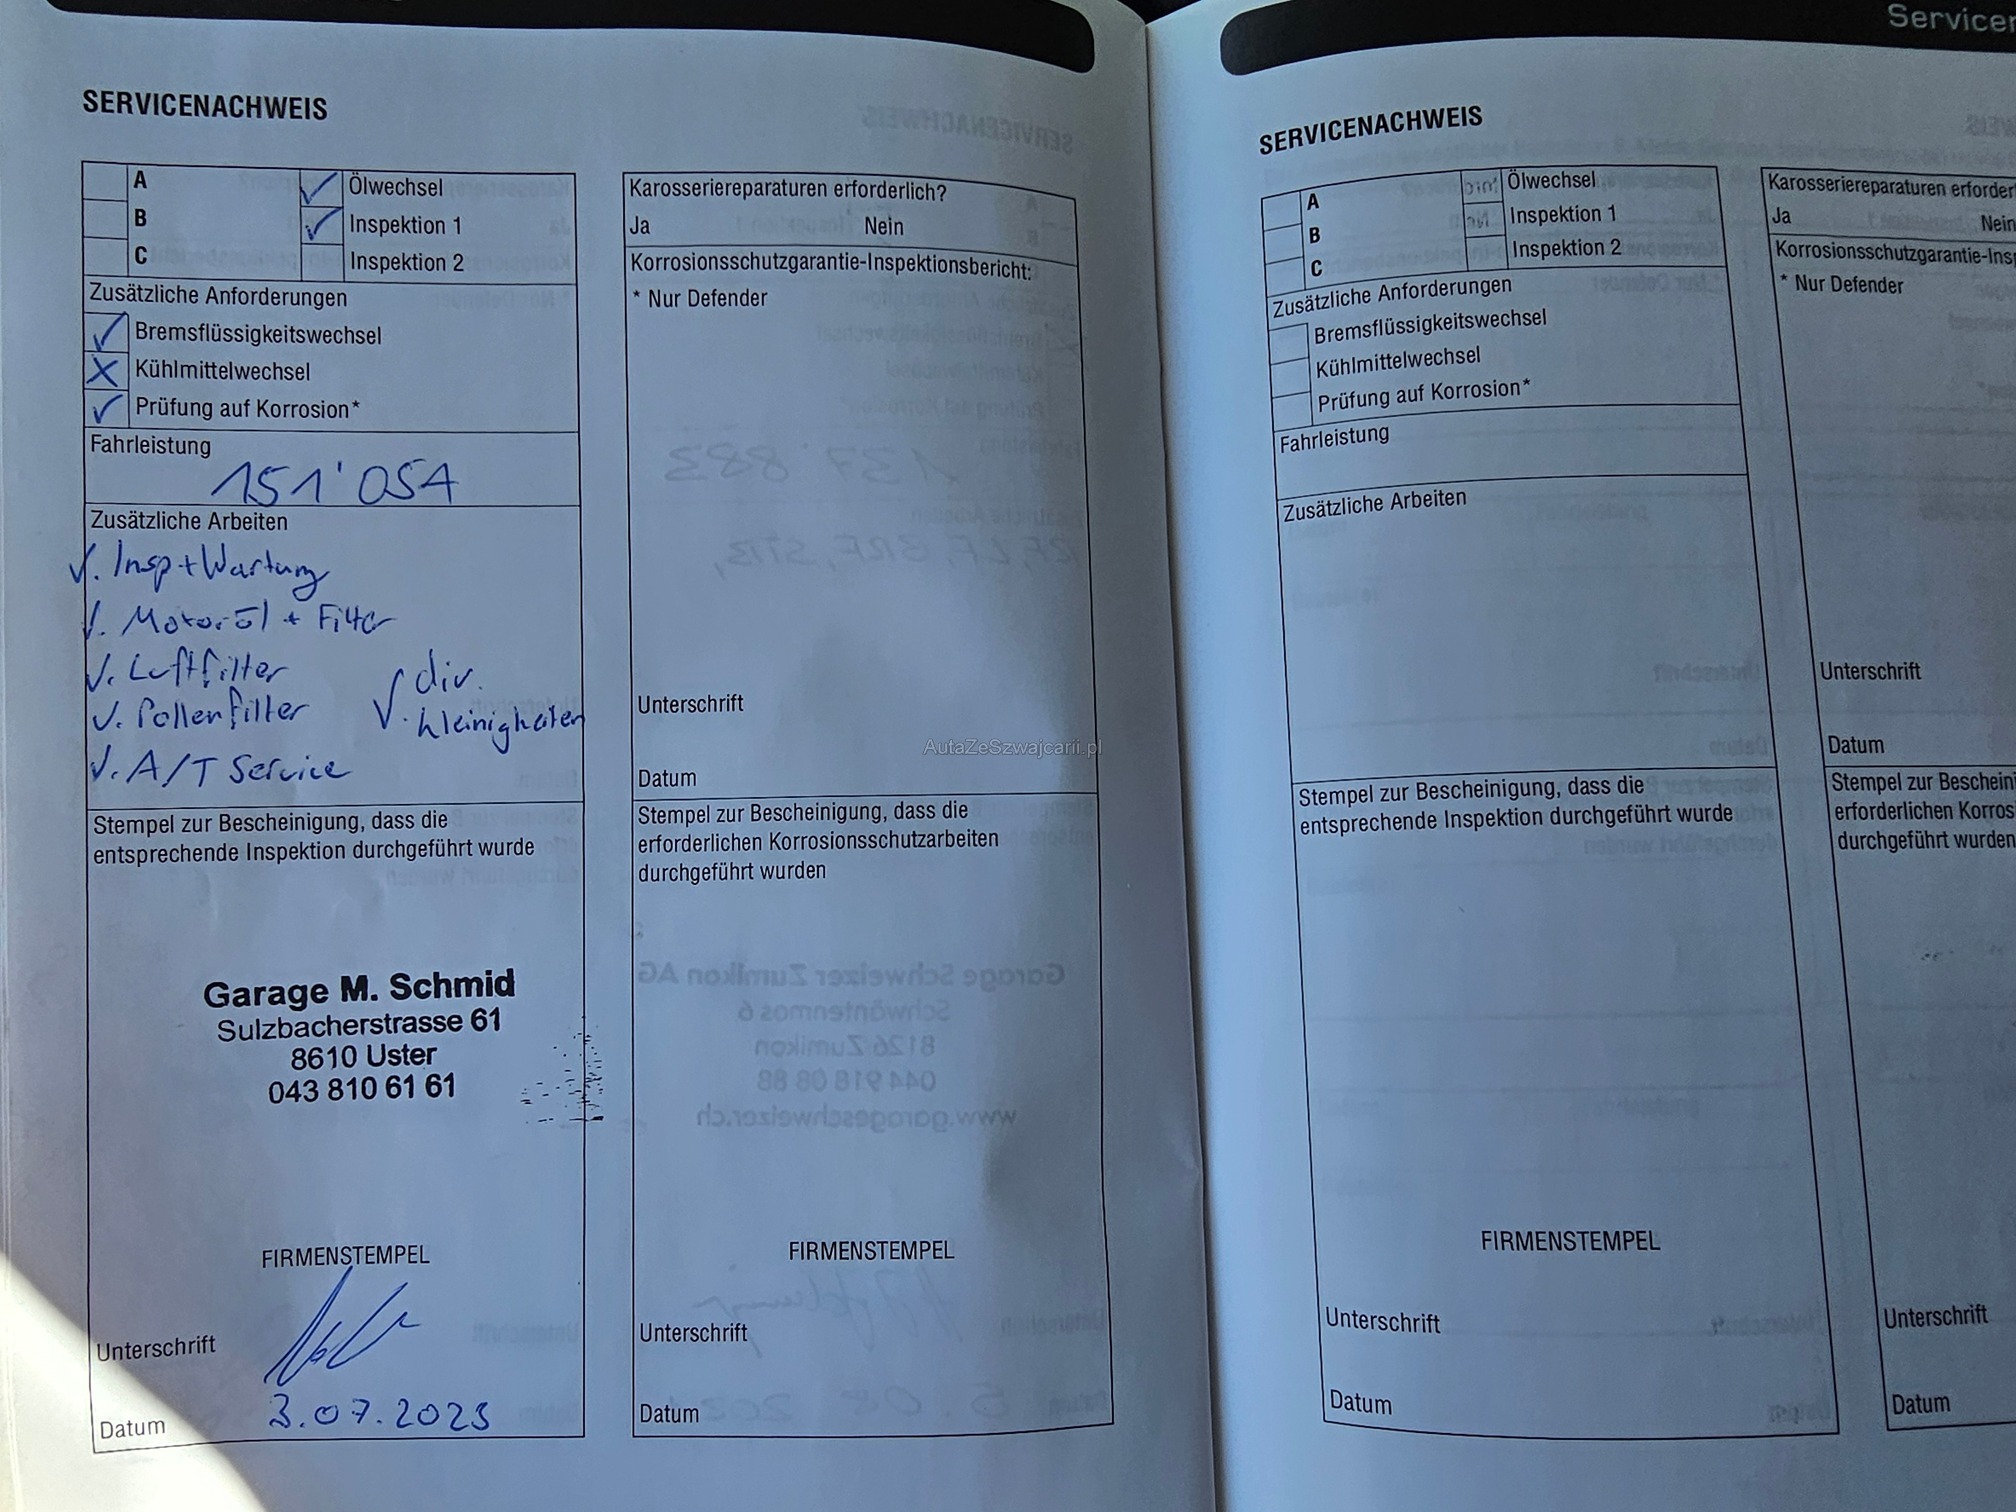 Servicen
SERVICENACHWEIS
A
B
C
Ölwechsel
Inspektion 1
Inspektion 2
Zusätzliche Anforderungen
Bremsflüssigkeitswechsel
Kühlmittelwechsel
Prüfung auf Korrosion*
Fahrleistung
151'054
Zusätzliche Arbeiten
√. Insp + Wartung
√. Motoröl + Filter
√. Luftfilter
√. Pollenfilter
√. A/T Service
√. div.
kleinigkeiten
Stempel zur Bescheinigung, dass die
entsprechende Inspektion durchgeführt wurde
Garage M. Schmid
Sulzbacherstrasse 61
8610 Uster
043 810 61 61
FIRMENSTEMPEL
Unterschrift
Datum
3.07.2023
Karosseriereparaturen erforderlich?
Ja Nein
Korrosionsschutzgarantie-Inspektionsbericht:
* Nur Defender
Unterschrift
Datum
Stempel zur Bescheinigung, dass die
erforderlichen Korrosionsschutzarbeiten
durchgeführt wurden
FIRMENSTEMPEL
Unterschrift
Datum
AutaZeSzwajcarii.pl
SERVICENACHWEIS
A
B
C
Ölwechsel
Inspektion 1
Inspektion 2
Zusätzliche Anforderungen
Bremsflüssigkeitswechsel
Kühlmittelwechsel
Prüfung auf Korrosion*
Fahrleistung
Zusätzliche Arbeiten
Stempel zur Bescheinigung, dass die
entsprechende Inspektion durchgeführt wurde
FIRMENSTEMPEL
Unterschrift
Datum
Karosseriereparaturen erforder
Ja Nein
Korrosionsschutzgarantie-Insp
* Nur Defender
Unterschrift
Datum
Stempel zur Beschein
erforderlichen Korros
durchgeführt wurden
Unterschrift
Datum